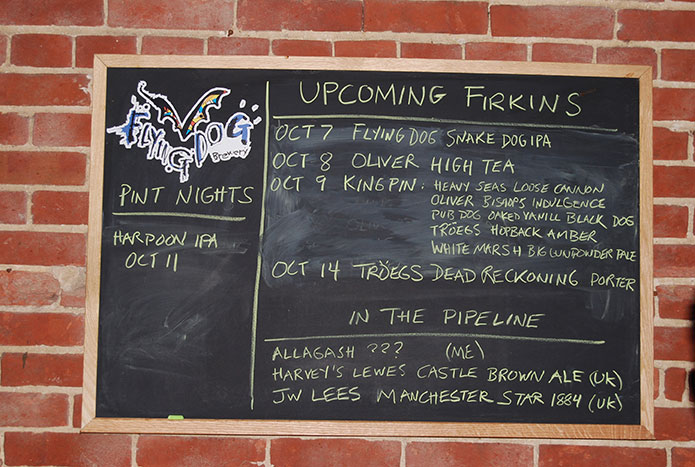 FLYING DOG
Brewery
PINT NIGHTS
HARPOON IPA
OCT 11
UPCOMING FIRKINS
OCT 7 FLYING DOG SNAKE DOG IPA
OCT 8 OLIVER HIGH TEA
OCT 9 KINGPIN: HEAVY SEAS LOOSE CANNON
OLIVER BISHOPS INDULGENCE
PUB DOG OAKED VANILL BLACK DOG
TRÖEGS HOPBACK AMBER
WHITE MARSH BIG GUNPOWDER PALE
OCT 14 TRÖEGS DEAD RECKONING PORTER
IN THE PIPELINE
ALLAGASH ??? (ME)
HARVEY'S LEWES CASTLE BROWN ALE (UK)
JW LEES MANCHESTER STAR 1884 (UK)